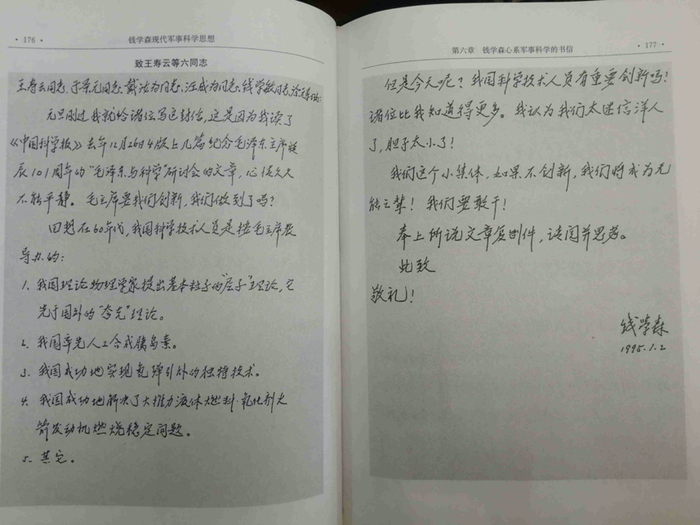 ·176·
钱学森现代军事科学思想
致王寿云等六同志
王寿云同志、于景元同志、戴汝为同志、汪成为同志、钱学敏同志、涂元季同志:
元旦刚过我就给诸位写这封信,这是因为我读了
《中国科学报》去年12月26日4版上几篇纪念毛泽东主席诞
辰101周年的“毛泽东与科学”研讨会的文章,心里久久
不能平静。毛主席要我们创新,我们做到了吗?
回想在60年代,我国科学技术人员是按毛主席教
导办的:
1. 我国理论物理学家提出基本粒子的“层子”理论,它
先于国外的“夸克”理论。
2. 我国率先人工合成胰岛素。
3. 我国成功地实现氢弹引爆的独特技术。
4. 我国成功地解决了大推力液体燃料-氧化剂火
箭发动机燃烧稳定问题。
5. 其它。
第六章 钱学森心系军事科学的书信
·177·
但是今天呢?我国科学技术人员有重要创新吗?
诸位比我知道得更多。我认为我们太迷信洋人
了,胆子太小了!
我们这个小集体,如果不创新,我们将成为无
能之辈!我们要敢干!
奉上所说文章复印件,请阅并思考。
此致
敬礼!
钱学森
1995.1.2